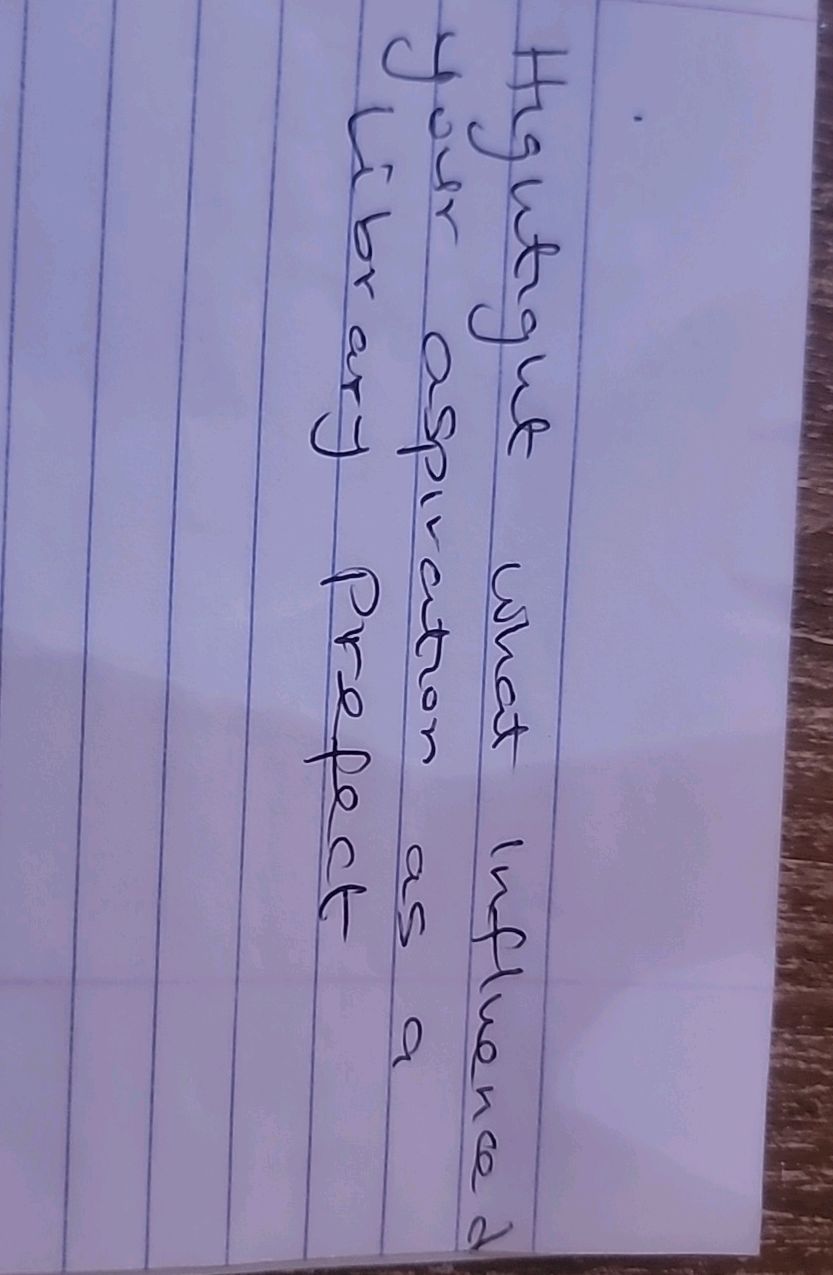 Hightight what influenced
your aspiration as a
Library prefect